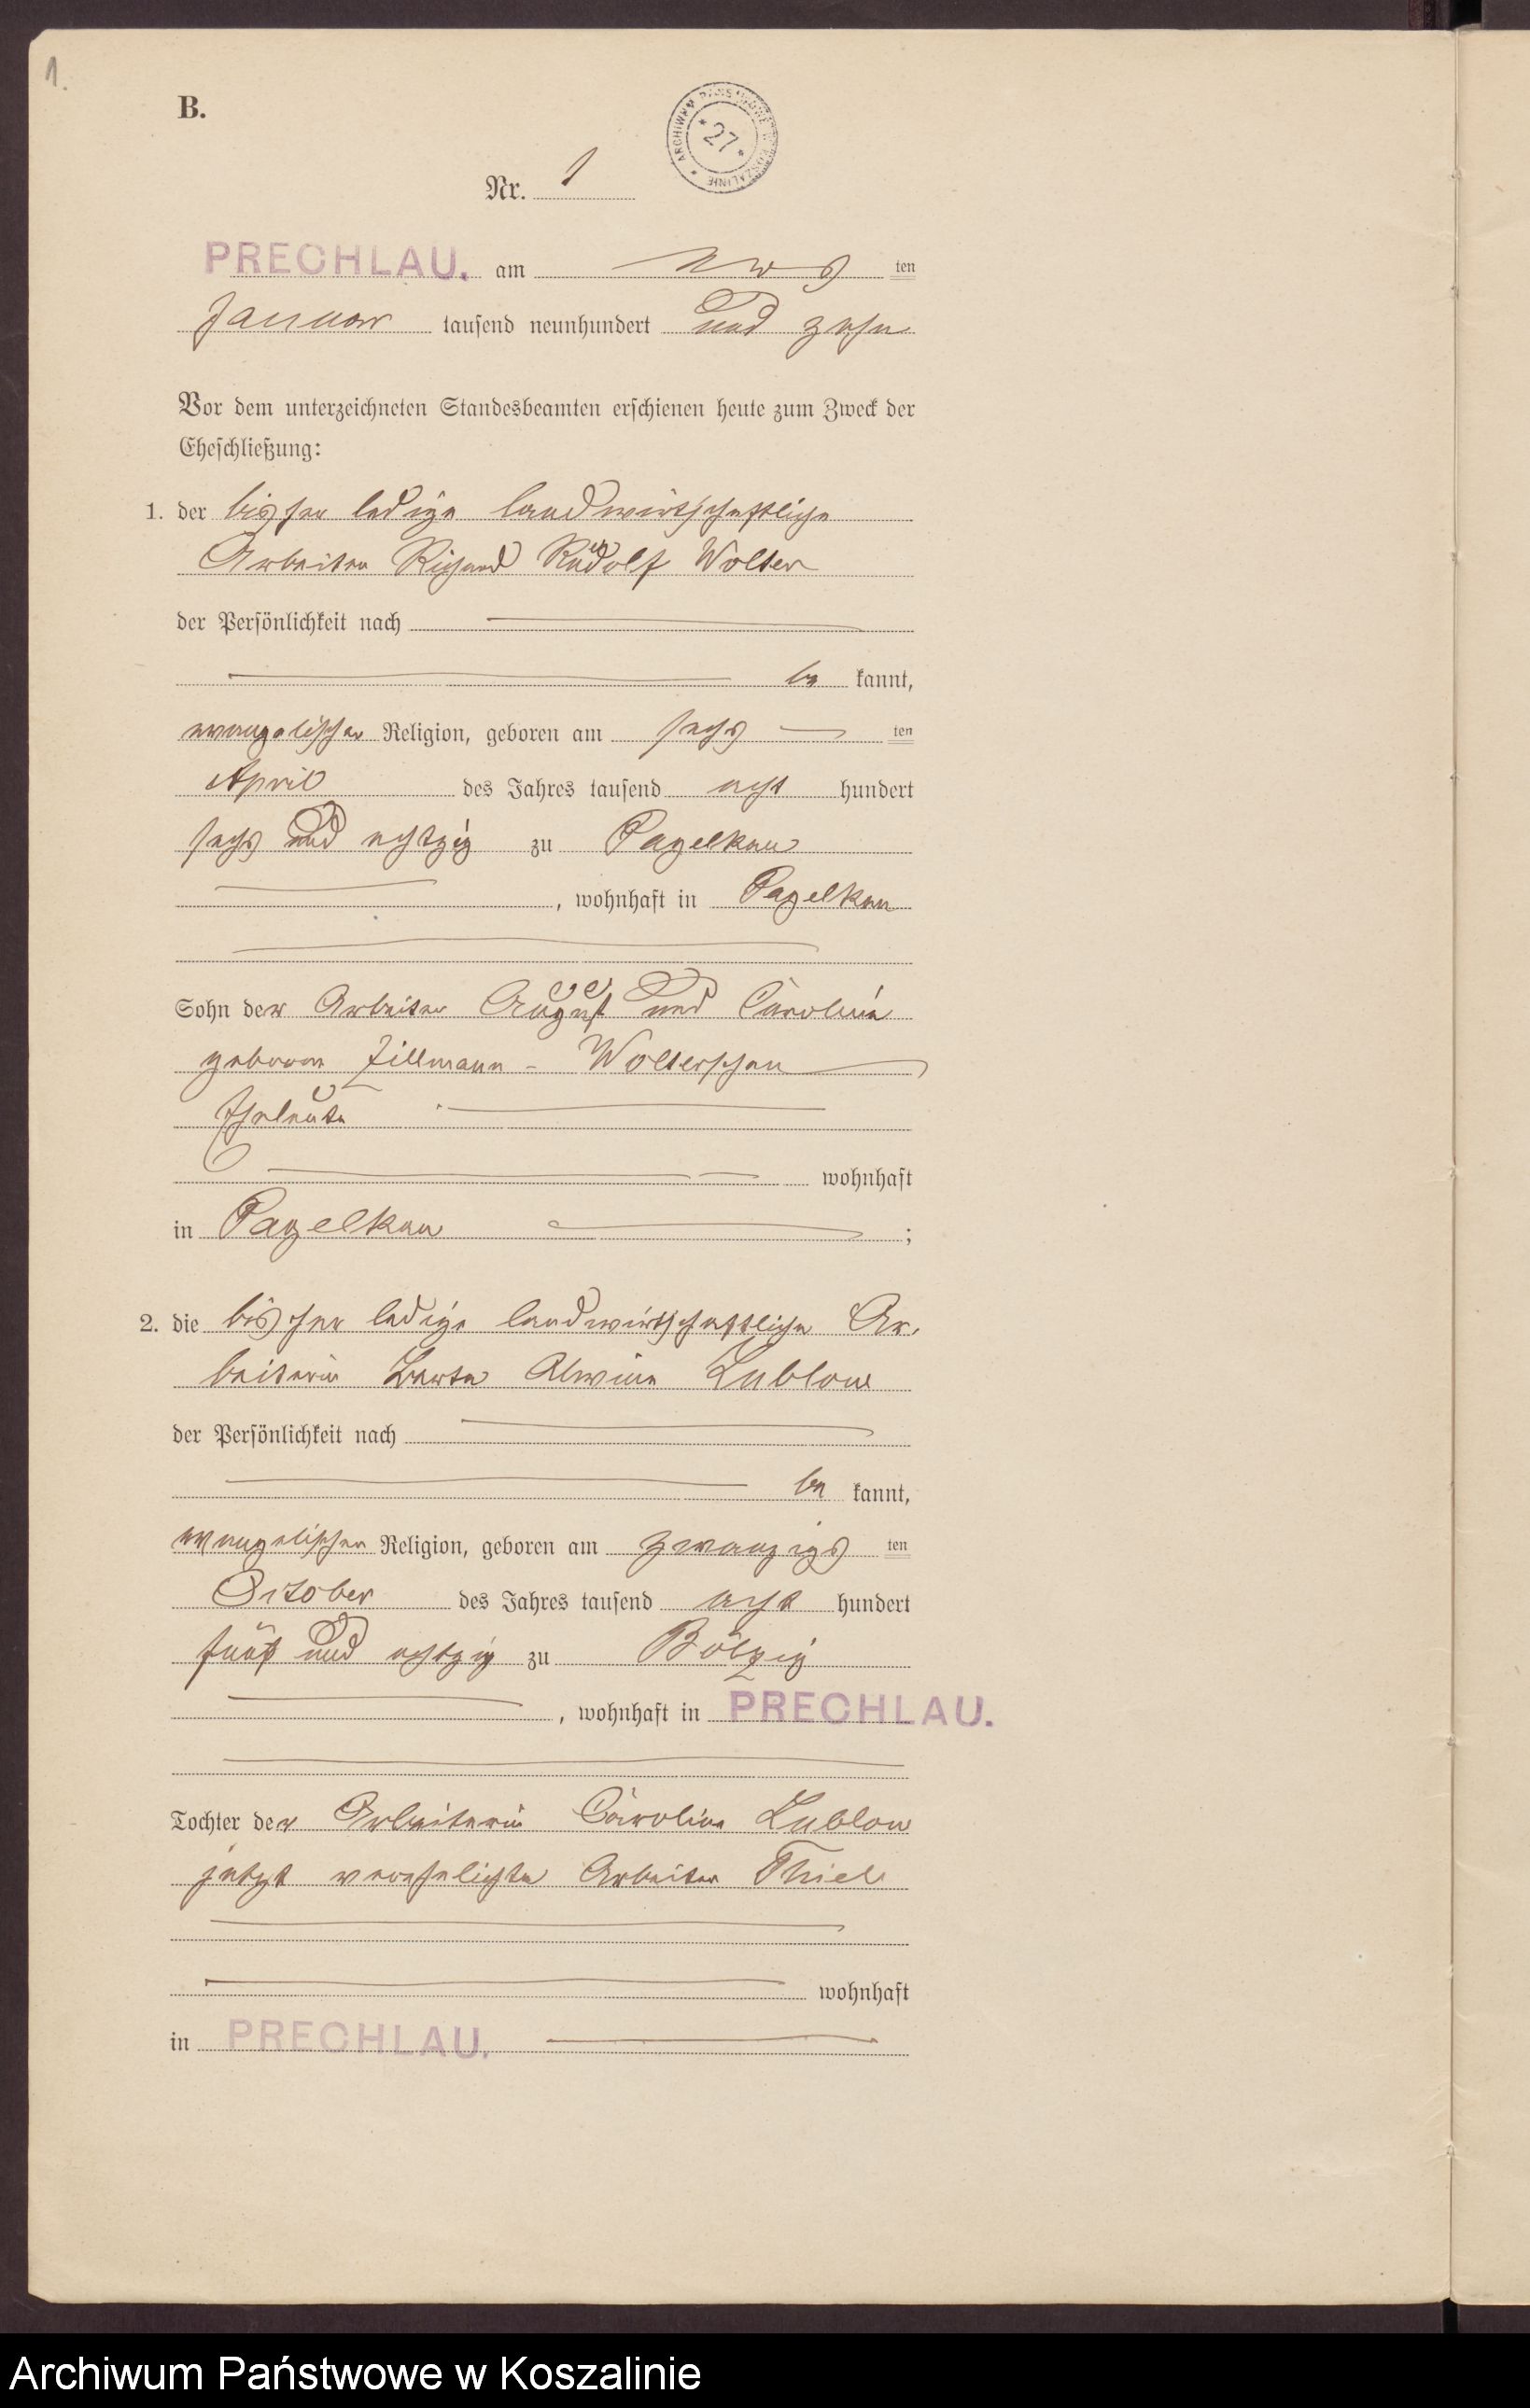 1.
B.
ARCHIWUM PAŃSTWOWE W KOSZALINIE * 27 *
Nr. 1
PRECHLAU. am ten
Januar tausend neunhundert und zehn
Vor dem unterzeichneten Standesbeamten erschienen heute zum Zweck der
Eheschließung:
1. der bisher ledige landwirtschaftliche
Arbeiter Richard Rudolf Wolter
der Persönlichkeit nach
be kannt,
evangelischer Religion, geboren am sechs ten
April des Jahres tausend acht hundert
sechs und achtzig zu Pagelkau
, wohnhaft in Pagelkau
Sohn der Arbeiter August und Caroline
geborene Zillmann - Wolterschen
Eheleute
wohnhaft
in Pagelkau ;
2. die bisher ledige landwirtschaftliche Ar-
beiterin Alwine Lublow
der Persönlichkeit nach
be kannt,
evangelischer Religion, geboren am zwanzigs ten
October des Jahres tausend acht hundert
fünf und achtzig zu Bölzig
, wohnhaft in PRECHLAU.
Tochter der Arbeiterin Caroline Lublow
jetzt verehelichte Arbeiter Thiel
wohnhaft
in PRECHLAU.
Archiwum Państwowe w Koszalinie